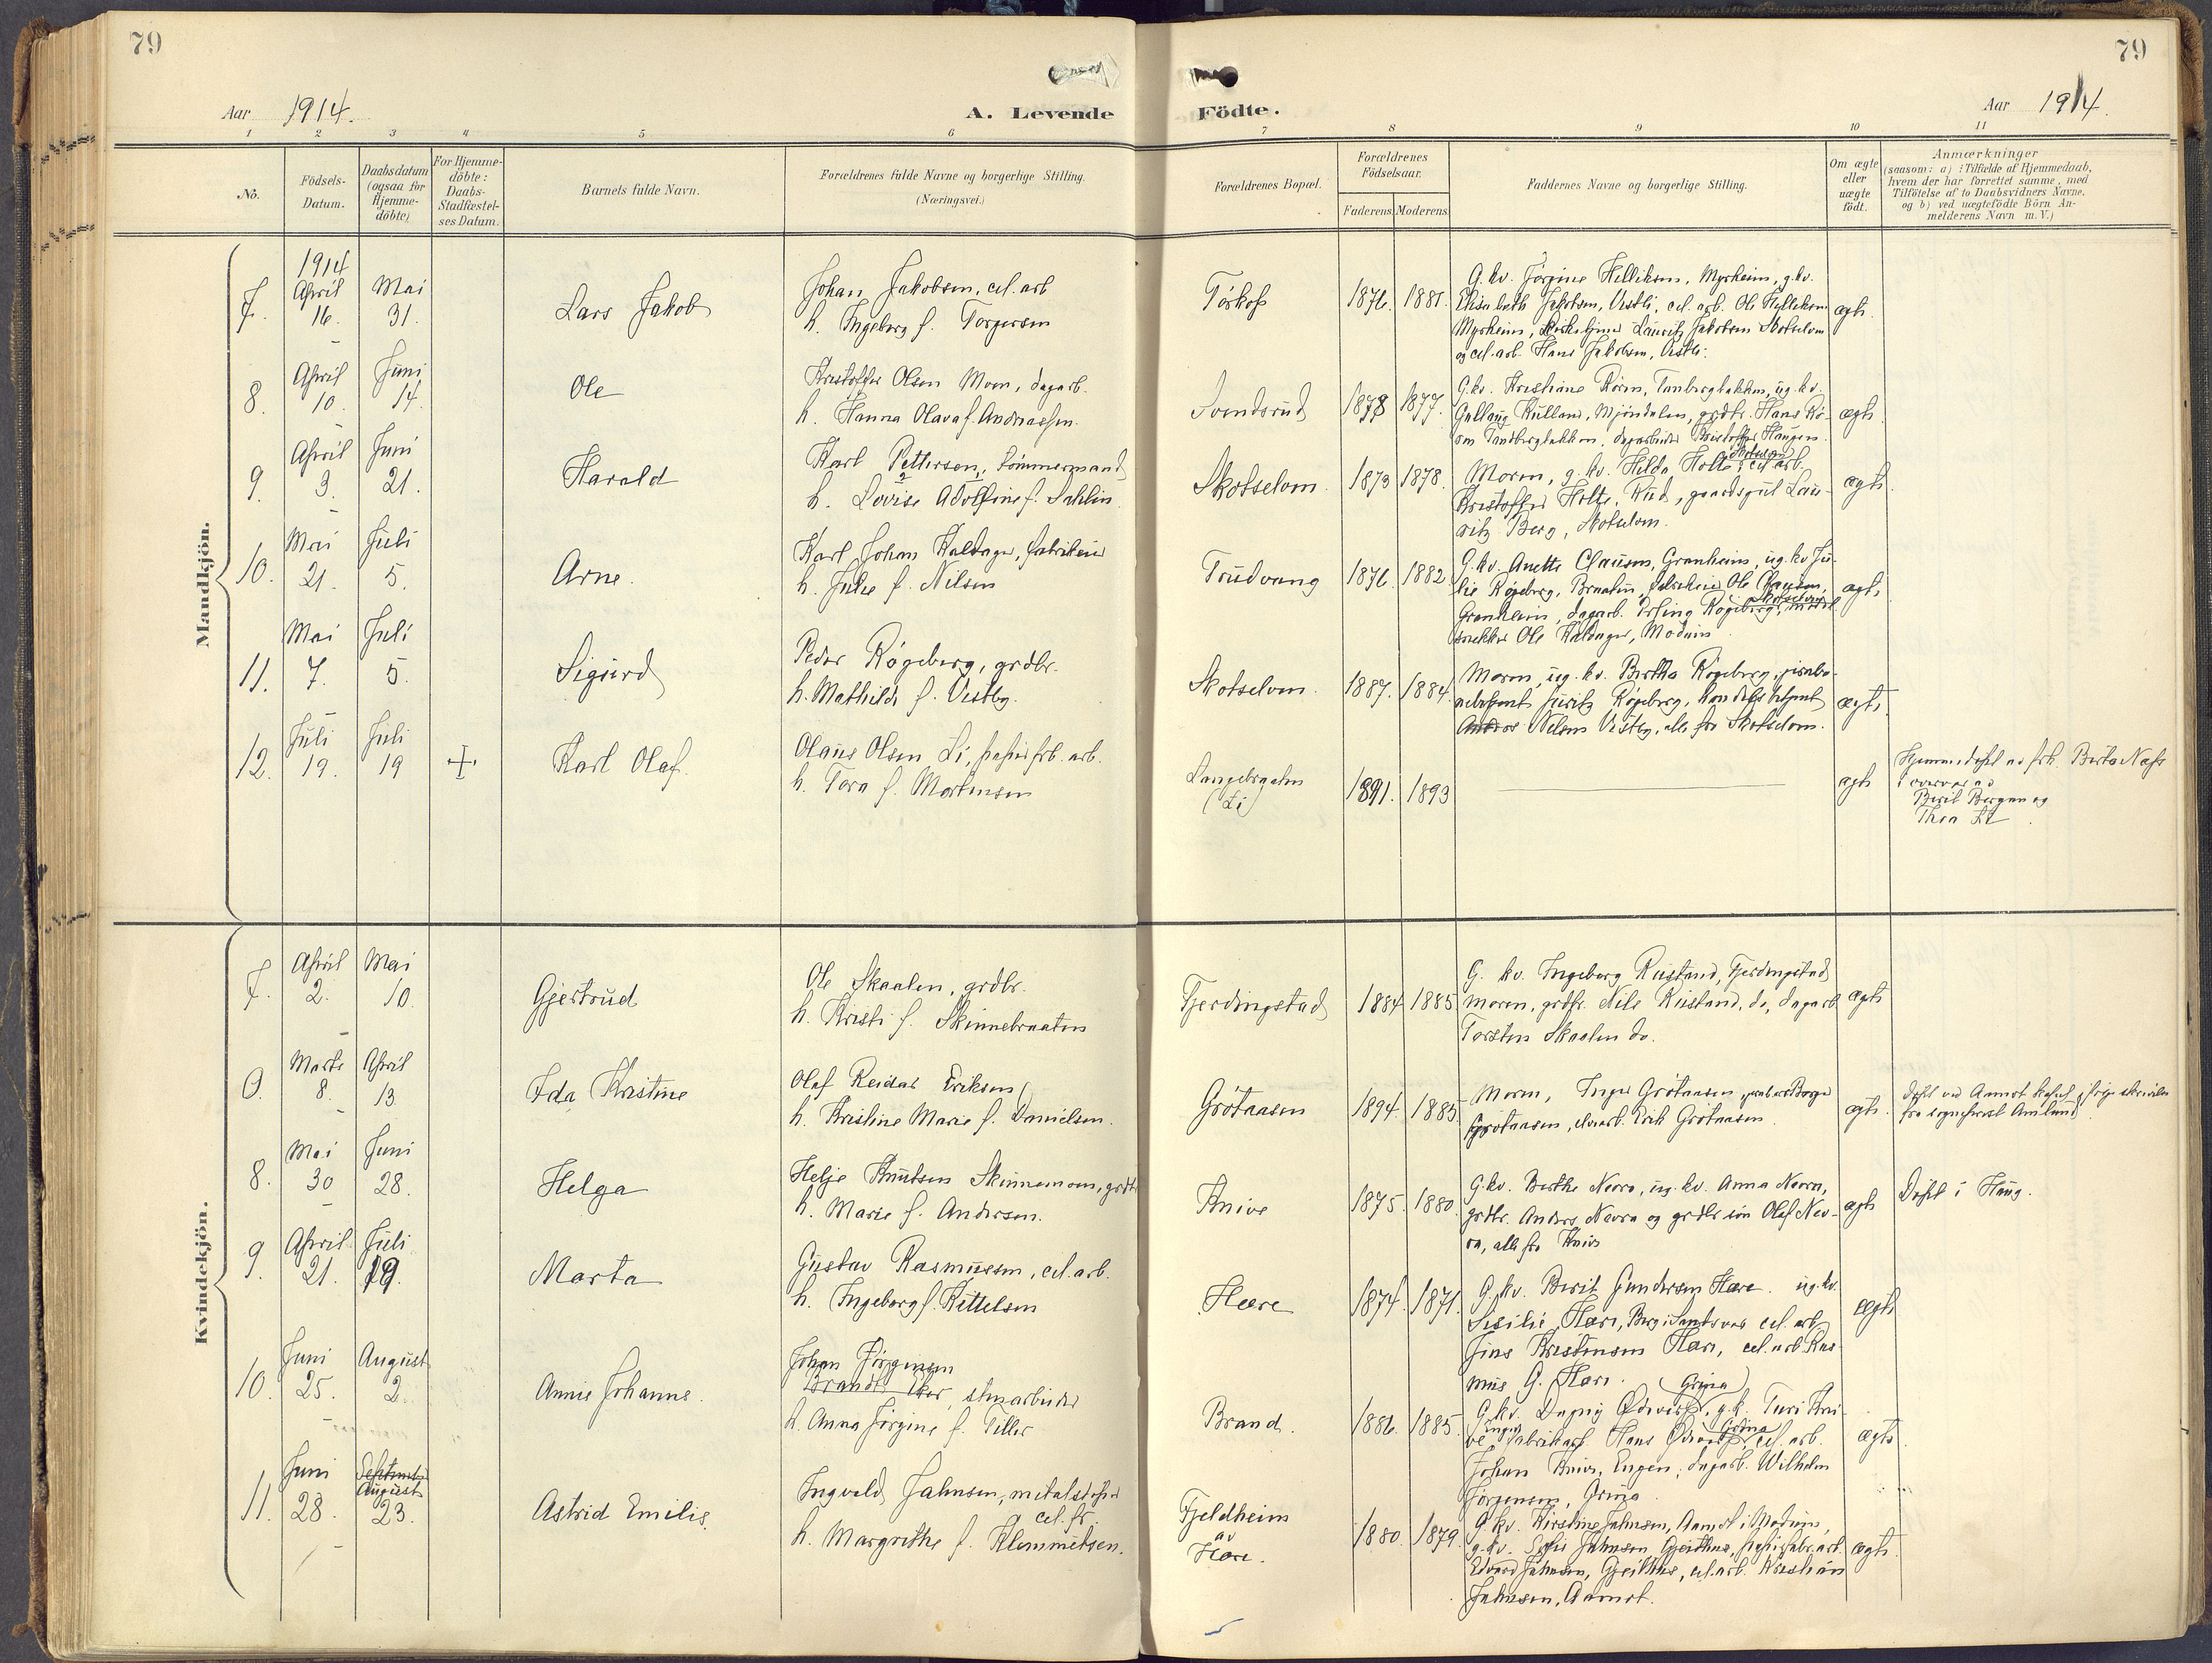 79
79
Aar 1914.
A. Levende
Födte.
Aar 1914.
1 2 3 4 5 6 7 8 9 10 11
No.
Födsels-
Datum.
Daabsdatum
(ogsaa for
Hjemme-
döbte)
For Hjemme-
döbte:
Daabs-
Stadfæstel-
ses Datum.
Barnets fulde Navn.
Forældrenes fulde Navne og borgerlige Stilling.
(Næringsvei.)
Forældrenes Bopæl.
Forældrenes
Födselsaar.
Faderens. Moderens.
Faddernes Navne og borgerlige Stilling.
Om ægte
eller
uægte
födt.
Anmærkninger
(saasom: a) i Tilfælde af Hjemmedaab,
hvem der har forrettet samme, med
Tilföielse af to Daabsvidners Navne.
og b) ved uægtefödte Börn An-
melderens Navn m.V.)
Mandkjön.
1914
7. April 16. Mai 31. Lars Jakob
Johan Jakobsen, cel. arb
h. Ingeborg f. Torgersen
1876. 1881.
G.kv. Jörgine Helliksen, Myrheim, g.kv.
Elisabeth Jakobsen, Vestli, cel. arb. Ole Helliksen
Myrheim, Lauritz Jakobsen Skotselven
og cel. arb. Hans Jakobsen, Vestli.
ægte.
8. April 10. Juni 14. Ole
Kristoffer Olsen Moen, dagarb.
h. Hanna Olava f. Andreassen.
Svendsrud 1878 1877.
G.kv. Kristiane Rören, Tanbergbakken, ug. kv.
Gullaug Kulland, Mjöndalen, grdbr. Hans Rö-
ren Tandbergbakken, dagarbeider Kristoffer Haugen.
ægte
9. April 3. Juni 21. Harald
Karl Pettersen, tömmermand
h. Lovise Adolfine f. Sahlin
Skotselven. 1873 1878.
Moren, g. kv. Hilda Holte, cel. arb.
Kristoffer Holte, Rud, gaardsgut Lau-
ritz Berg, Skotselven.
ægte
10. Mai 21. Juli 5. Arne.
Karl Johan Kaldager, fabrikeier
h. Julie f. Nilsen
Trudvang 1876 1882
G.kv. Anette Clausen, Granheim, ug. kv Ju-
lie Rögeberg, Braaten, fabrikeier Ole Clausen,
Granheim, dagarb. Erling Rögeberg, Skotselven, möbel
snekker Ole Kaldager, Modum
ægte
11. Mai 7. Juli 5. Sigurd
Peder Rögeberg, grdbr.
h. Mathilde f. Vestby.
Skotselven. 1887. 1884.
Moren, ug. kv. Bertha Rögeberg, jernba-
nebetjent Juritz Rögeberg, handelsbetjent
Nilsen Vestby, alle fra Skotselven.
ægte
12. Juli 19. Juli 19 + Karl Olaf
Olaus Olsen Li, papirfrb. arb.
h. Tora f. Mortensen
Langebraaten
(Li)
1891. 1893
ægte
Hjemmedöpt av frk. Berta Næss
i overvær av
Berit Bergan og
Thea Li.
Kvindekjön.
7. April 2. Mai 10. Gjertrud
Ole Skaalen, grdbr.
h. Kristi f. Skinnebraaten
Fjerdingstad 1884 1885
G. kv. Ingeborg Rustand, Fjerdingstad
moren, grdbr. Nils Rustand, do, dagarb
Torsten Skaalen do.
ægte
0. Marts 8. April 13 Ida Kristine
Olaf Reidar Eriksen
h. Kristine Marie f. Danielsen.
Grötaasen 1894. 1885.
Moren, Inga Grötaasen, Borger
Grötaasen, elvearb. Erik Grötaasen.
ægte.
Döpt ved Aamot kapel, ifölge skrivelse
fra sogneprest Amlund
8. Mai 30 Juni 28. Helga
Helje Knutsen Skinnemoen, grdbr
h. Marie f. Andersen.
Knive 1875. 1880.
G.kv. Berthe Nevra, ug. kv. Anna Nevra,
grdbr. Anders Nevra og grdbr sön Olaf Nev-
ra, alle fra Knive
ægte
Döpt i Haug.
9. April 21. Juli 19. Marta
Gustav Rasmussen, cel. arb.
h. Ingeborg f. Kittelsen
Hære 1874. 1871.
G.kv. Berit Gundersen Hære. ug. kv.
Sisilie Hære, Berg i Sandsvær cel. arb
Jins Kristensen Hære, cel. arb. Ras-
mus G. Hære.
ægte
10. Juni 25. August 2. Annie Johanne.
Johan Jörgensen
Brand, stenarbeider
h. Anna Jörgine f. Tiller
Brand. 1886. 1885.
G.kv. Dagny, g.k. Turi Kni-
ve, fabrikarb. Hans, cel. arb.
Johan Knive, Engen, dagarb. Wilhelm
Jörgensen, Grina
ægte
11. Juni 28. Septemb August 23. Astrid Emilie.
Ingvald Jahnsen, metalstöper
cel. fr.
h. Margrethe f. Klemmetsen.
Fjeldheim
av
Hære.
1880. 1879.
G.kv. Kirstine Jahnsen, Aamot i Modum,
g.kv. Sofie Jahnsen Gjeithus, papirfabr.arb.
Edvard Jahnsen, Gjeithus, cel. arb. Kristian
Jahnsen, Aamot.
ægte.